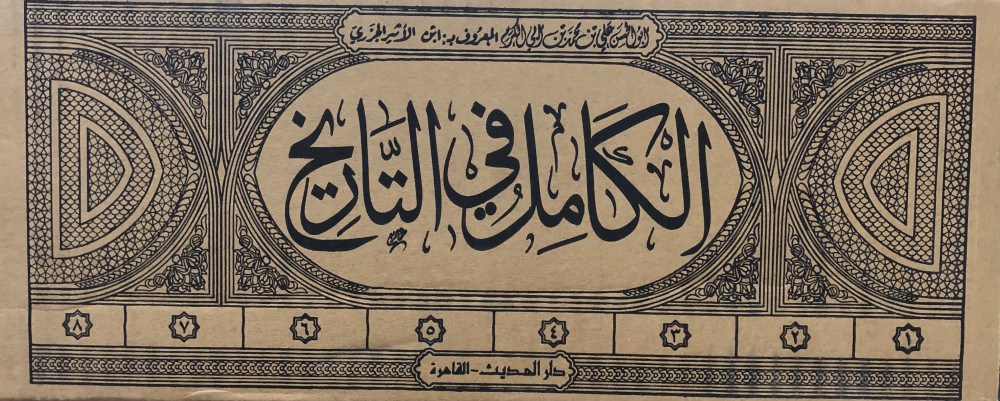 أبو الحسن علي بن محمد بن أبي الكرم المعروف بـ: ابن الأثير الجزري
الكامل في التاريخ
١ ٢ ٣ ٤ ٥ ٦ ٧ ٨
دار الحديث - القاهرة